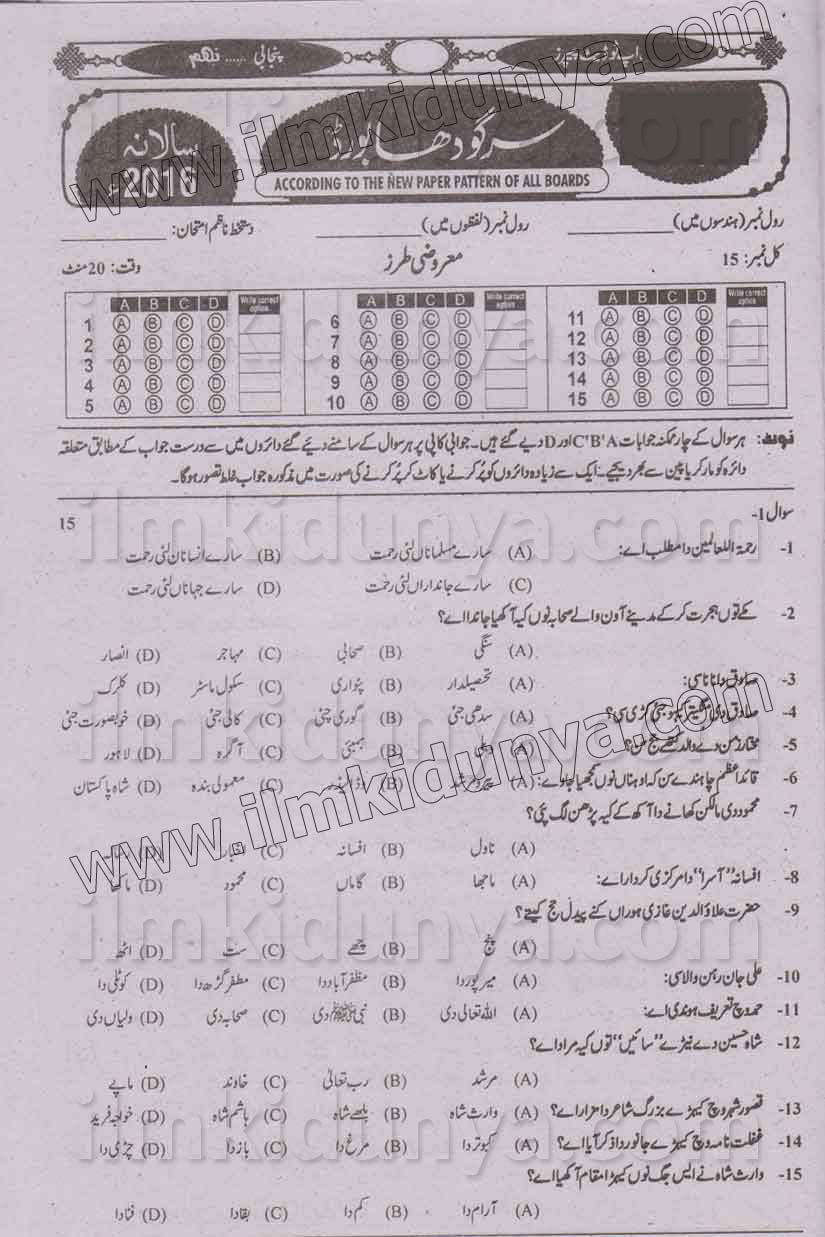 پنجابی ...... نہم
سرگودھا بورڈ
سالانہ
2016ء
ACCORDING TO THE NEW PAPER PATTERN OF ALL BOARDS
www.ilmkidunya.com
رول نمبر (ہندسوں میں) __________ رول نمبر (لفظوں میں) __________ دستخط ناظم امتحان: __________
کل نمبر: 15 معروضی طرز وقت: 20 منٹ
A B C D Write correct option A B C D Write correct option A B C D Write correct option
1 A B C D 6 A B C D 11 A B C D
2 A B C D 7 A B C D 12 A B C D
3 A B C D 8 A B C D 13 A B C D
4 A B C D 9 A B C D 14 A B C D
5 A B C D 10 A B C D 15 A B C D
نوٹ: ہر سوال کے چار ممکنہ جوابات C'B'A اور D دیے گئے ہیں۔ جوابی کاپی پر ہر سوال کے سامنے دیئے گئے دائروں میں سے درست جواب کے مطابق متعلقہ
دائرہ کو مارکر یا پین سے بھر دیجیے۔ ایک سے زیادہ دائروں کو پُر کرنے یا کاٹ کر پُر کرنے کی صورت میں مذکورہ جواب غلط تصور ہوگا۔
سوال 1- 15
1- رحمۃ اللعالمین دا مطلب اے: (A) سارے مسلماناں لئی رحمت (B) سارے انسانان لئی رحمت
(C) سارے جانداراں لئی رحمت (D) سارے جہاناں لئی رحمت
2- مکے توں ہجرت کر کے مدینے آون والے صحابہ نوں کیہ آکھیا جاندا اے؟
(A) سنگی (B) صحابی (C) مہاجر (D) انصار
3- صادق دا نانا سی: (A) تحصیلدار (B) پٹواری (C) سکول ماسٹر (D) کلرک
4- صادق دی منگیتر کہو جئی کڑی سی؟ (A) سدھی جئی (B) گوری چٹی (C) کالی جئی (D) خوبصورت جئی
5- مختار زمن دے والد کتھے جج سن؟ (A) دہلی (B) بمبئی (C) آگرہ (D) لاہور
6- قائداعظم چاہندے سن کہ اوہناں نوں سمجھیا جاوے: (A) پیر و مرشد (B) (C) معمولی بندہ (D) شاہ پاکستان
7- محمود دی مالکن کھانے دا آکھ کے کیہ پڑھن لگ پئی؟
(A) ناول (B) افسانہ (C) اخبار (D)
8- افسانہ "آسرا" دا مرکزی کردار اے: (A) ماجھا (B) گاماں (C) محمود (D) ماکھا
9- حضرت علاؤ الدین غازی ہوراں کنے پیدل حج کیتے؟
(A) پنج (B) چھے (C) ست (D) اٹھ
10- علی جان رہن والا سی: (A) میرپور دا (B) مظفر آباد دا (C) مظفر گڑھ دا (D) کوٹلی دا
11- حمد وچ تعریف ہوندی اے: (A) اللہ تعالی دی (B) نبی ﷺ دی (C) صحابہ دی (D) ولیاں دی
12- شاہ حسین دے نیڑے "سائیں" توں کیہ مراد اے؟
(A) مرشد (B) رب تعالیٰ (C) خاوند (D) ماپے
13- قصور شہر وچ کیہڑے بزرگ شاعر دا مزار اے؟ (A) وارث شاہ (B) بلھے شاہ (C) ہاشم شاہ (D) خواجہ فرید
14- غفلت نامہ وچ کیہڑے جانور دا ذکر آیا اے؟ (A) کبوتر دا (B) مرغ دا (C) باز دا (D) چڑی دا
15- وارث شاہ نے ایس جگ نوں کیہڑا مقام آکھیا اے؟
(A) آرام دا (B) کم دا (C) بقا دا (D) فنا دا